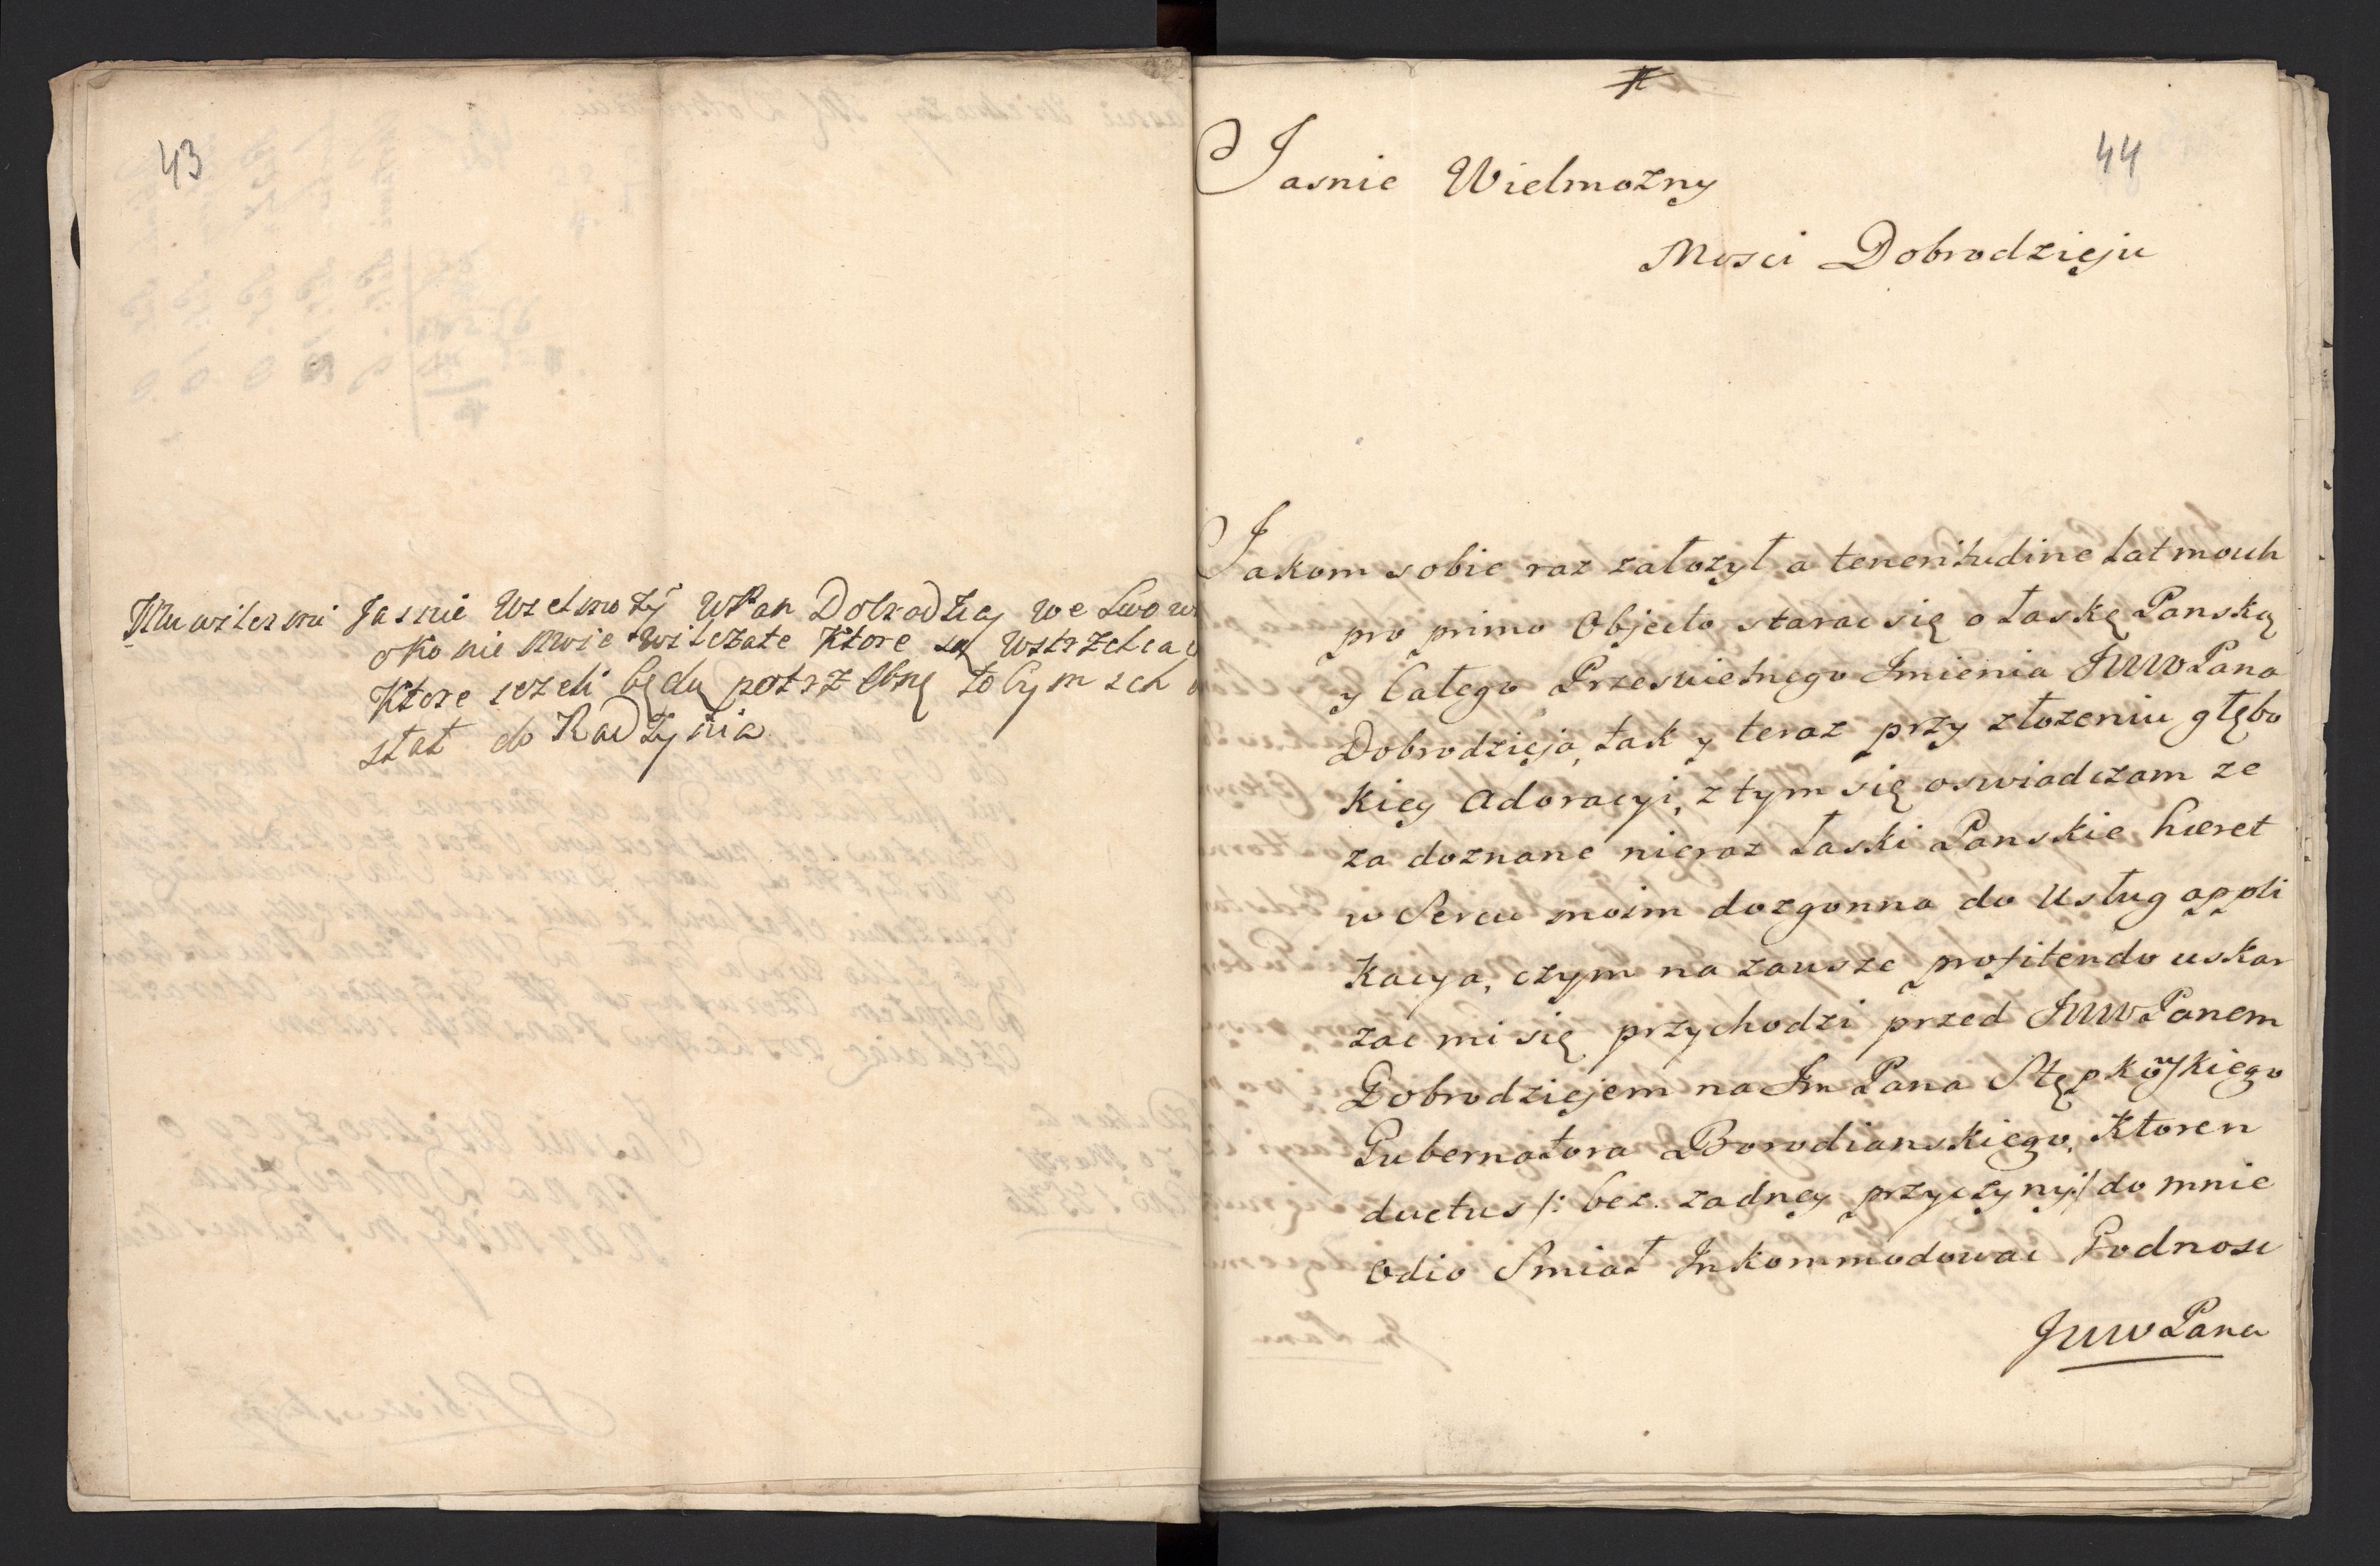 43
Muwiłes mi Jasnie Wzelmozy WPan Dobrodziey we Lwow
okonie Mvie wilczate Ktore są Wstrzelca
Ktore iezeli będą potrzebnę tobym ich
stał do Radzynia
44
Jasnie Wielmozny
Mosci Dobrodzieju
Jakom sobie raz załozył a teneritudine Lat moich
pro primo Objecto starac się o Łaskę Panską
y Całego Przeswietnego Jmienia JWWPana
Dobrodzieja, tak y teraz przy złozeniu głębo
kiey Adoracyi, z tym się oswiadczam ze
za doznane nieraz Łaski Panskie hæret
w Sercu moim dozgonna do Usług appli
Kacya, czym na zawsze profitendo uskar
zac mi się przychodzi przed JWWPanem
Dobrodziejem na Jm Pana Stępkowskiego
Gubernatora Borodianskiego, Ktoren
ductus /: bez zadney przyczyny :/ do mnie
Odio Smiał Jnkommodowac Godnosc
JWWPana